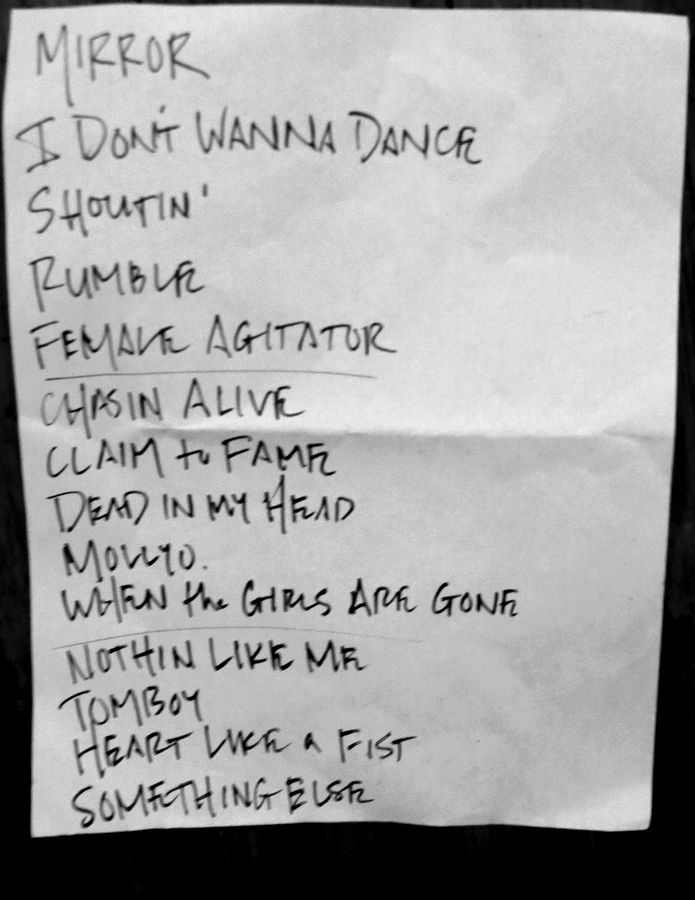 MIRROR
I DON'T WANNA DANCE
SHOUTIN'
RUMBLE
FEMALE AGITATOR
CHASIN ALIVE
CLAIM to FAME
DEAD IN MY HEAD
MOLLYO.
WHEN the GIRLS ARE GONE
NOTHIN LIKE ME
TOMBOY
HEART LIKE a FIST
SOMETHING ELSE